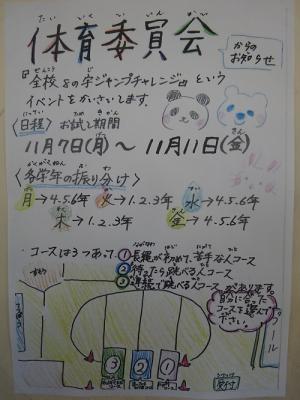 たいいくいいんかい
体育委員会
からの
お知らせ
『全校8の字ジャンプチャレンジ』という
イベントをかいさいします。
〈日程〉お試し期間
11月7日(月)～11月11日(金)
〈各学年の振り分け〉
月→4.5.6年 火→1.2.3年 水→4.5.6年
木→1.2.3年 金→4.5.6年
コースは3つあって、①長縄が初めて、苦手な人コース
②待ったら跳べる人コース
③連続で跳べる人コース
があります。
自分に合った
コースを選んで
ください。
プール
③ ② ①
受付